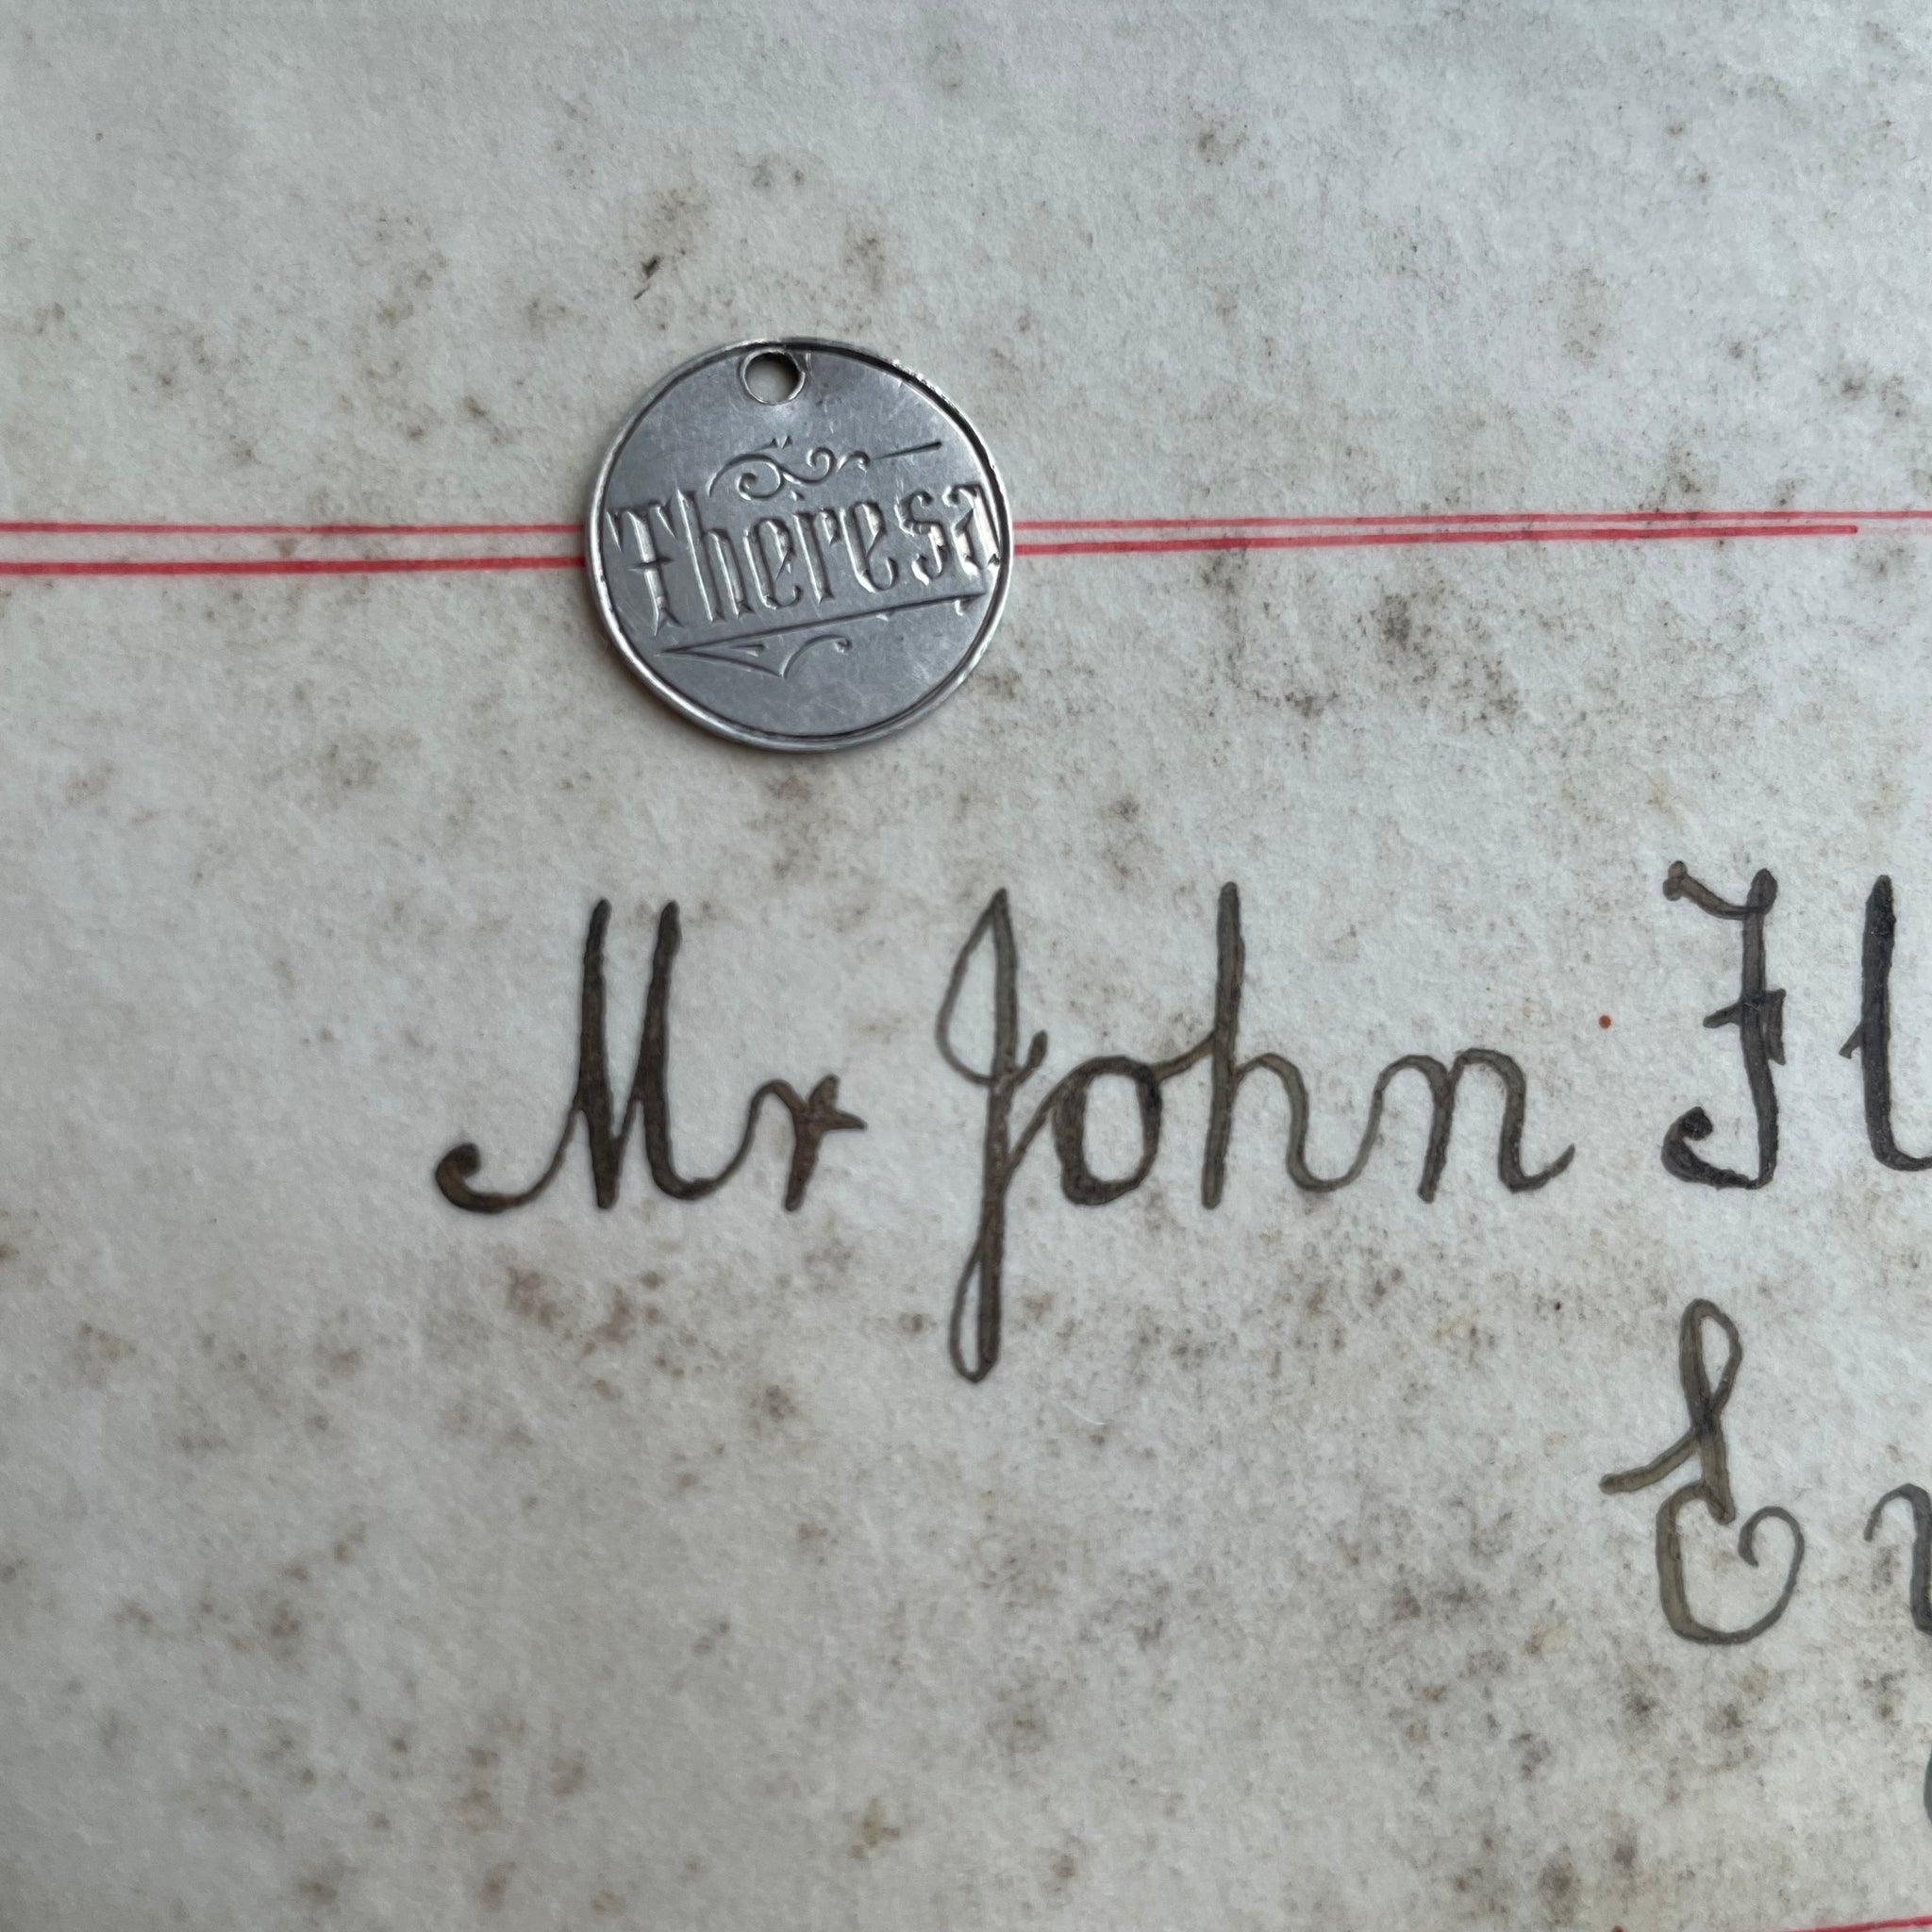 Theresa
Mr John Fl